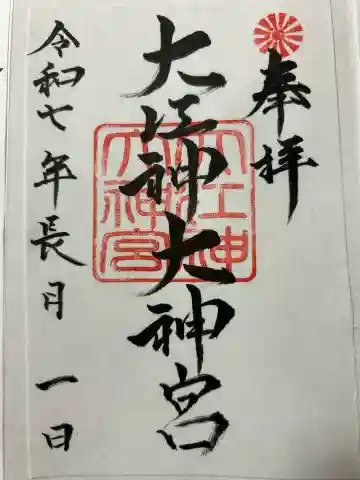 奉拝
大江神大神宮
大江神
大神宮
令和七年長月一日